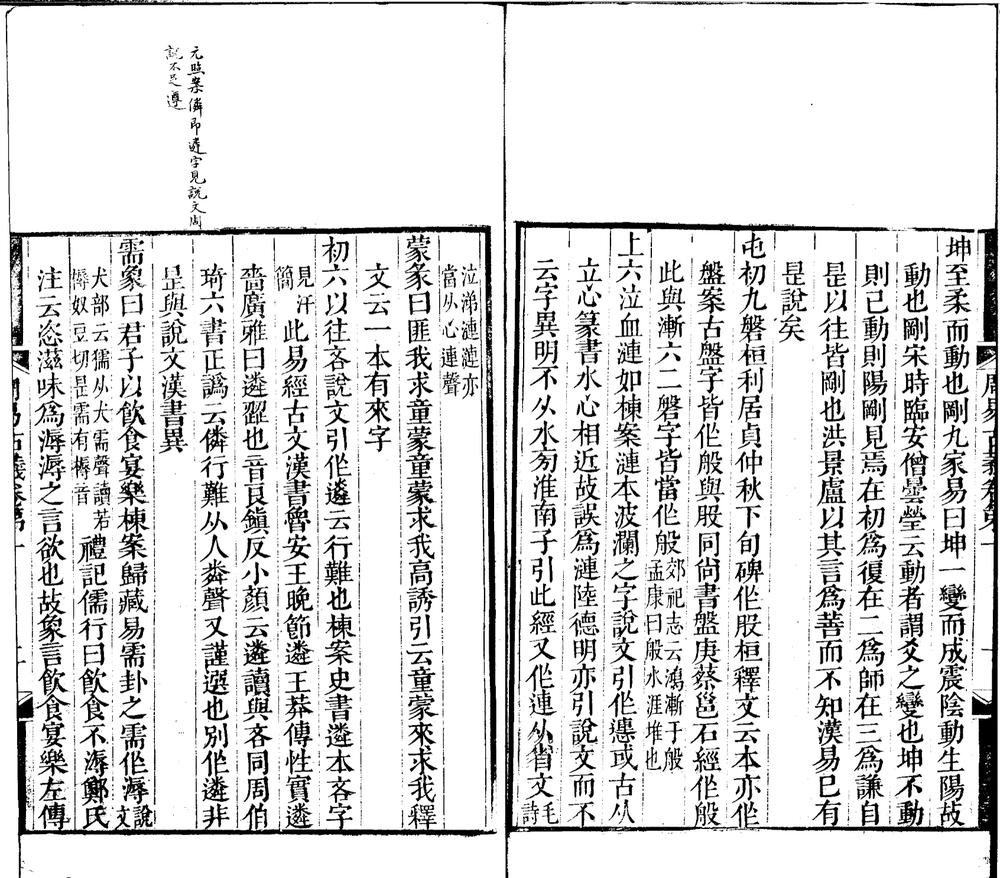 坤至柔而動也剛九家易曰坤一變而成震陰動生陽故
動也剛宋時臨安僧曇瑩云動者謂爻之變也坤不動
則已動則陽剛見焉在初為復在二為師在三為謙自
是以往皆剛也洪景盧以其言為善而不知漢易已有
是說矣
屯初九磐桓利居貞仲秋下旬碑作股桓釋文云本亦作
盤案古盤字皆作般與股同尚書盤庚蔡邕石經作般
此與漸六二磐字皆當作般郊祀志云鴻漸于般
孟康曰般水涯堆也
上六泣血漣如棟案漣本波瀾之字說文引作㦁或古从
立心篆書水心相近故誤為漣陸德明亦引說文而不
云字異明不从水㫄淮南子引此經又作連从省文毛
詩
泣涕漣漣亦
當从心連聲
蒙彖曰匪我求童蒙童蒙求我高誘引云童蒙來求我釋
文云一本有來字
初六以往吝說文引作遴云行難也棟案史書遴本吝字
見汗
簡
此易經古文漢書魯安王晚節遴王莽傳性實遴
嗇廣雅曰遴䍼也音艮鎮反小顏云遴讀與吝同周伯
琦六書正譌云僯行難从人粦聲又謹選也別作遴非
是與說文漢書異
需象曰君子以飲食宴樂棟案歸藏易需卦之需作溽說
文
犬部云獳从犬需聲讀若
槈奴豆切是需有槈音
禮記儒行曰飲食不溽鄭氏
注云恣滋味為溽溽之言欲也故象言飲食宴樂左傳
元照案僯即遴字見說文周
說不足遵
周易古義卷第一